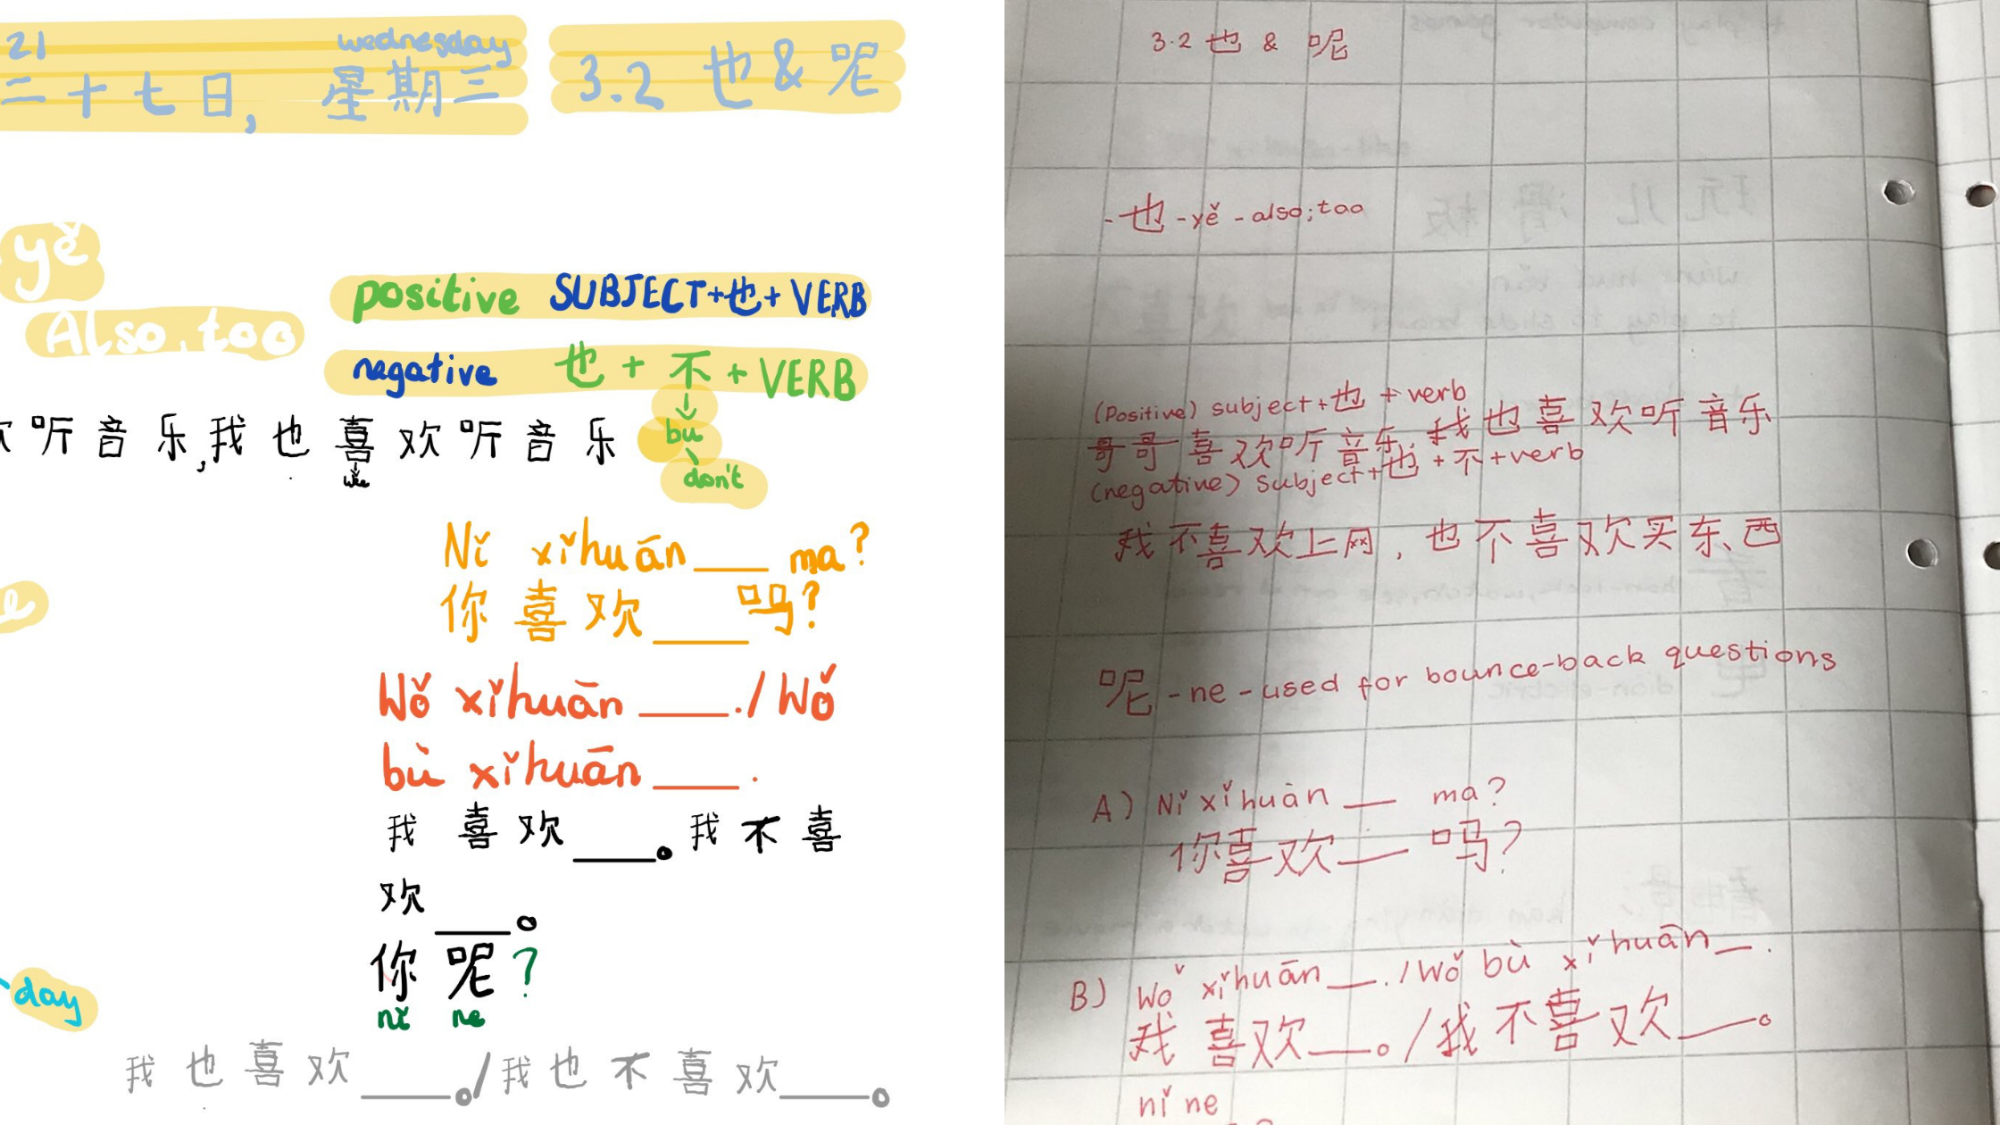 21
wednesday
二十七日, 星期三
3.2 也 & 呢
yě
Also, too
positive SUBJECT+也+VERB
negative 也+不+VERB
听音乐,我也喜欢听音乐
bù
don't
Nǐ xǐhuān ____ ma?
你喜欢____吗?
Wǒ xǐhuān ____. / Wǒ
bù xǐhuān ____.
我喜欢____。我不喜
欢____。
你呢?
nǐ ne
day
我也喜欢____。/我也不喜欢____。
3.2 也 & 呢
-也-yě-also;too
(Positive) subject+也+verb
哥哥喜欢听音乐,我也喜欢听音乐
(negative) subject+也+不+verb
我不喜欢上网,也不喜欢买东西
呢-ne-used for bounce-back questions
A) Nǐ xǐhuān __ ma?
你喜欢__吗?
B) Wǒ xǐhuān __. / Wǒ bù xǐhuān __.
我喜欢__。/我不喜欢__。
nǐ ne